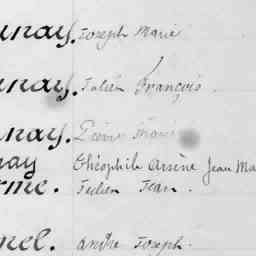 unay. Joseph Marie
unay. Julien François.
unay. Pierre Marie
nay Théophile Arsène Jean Ma
rme. Julien Jean.
nel. André Joseph.